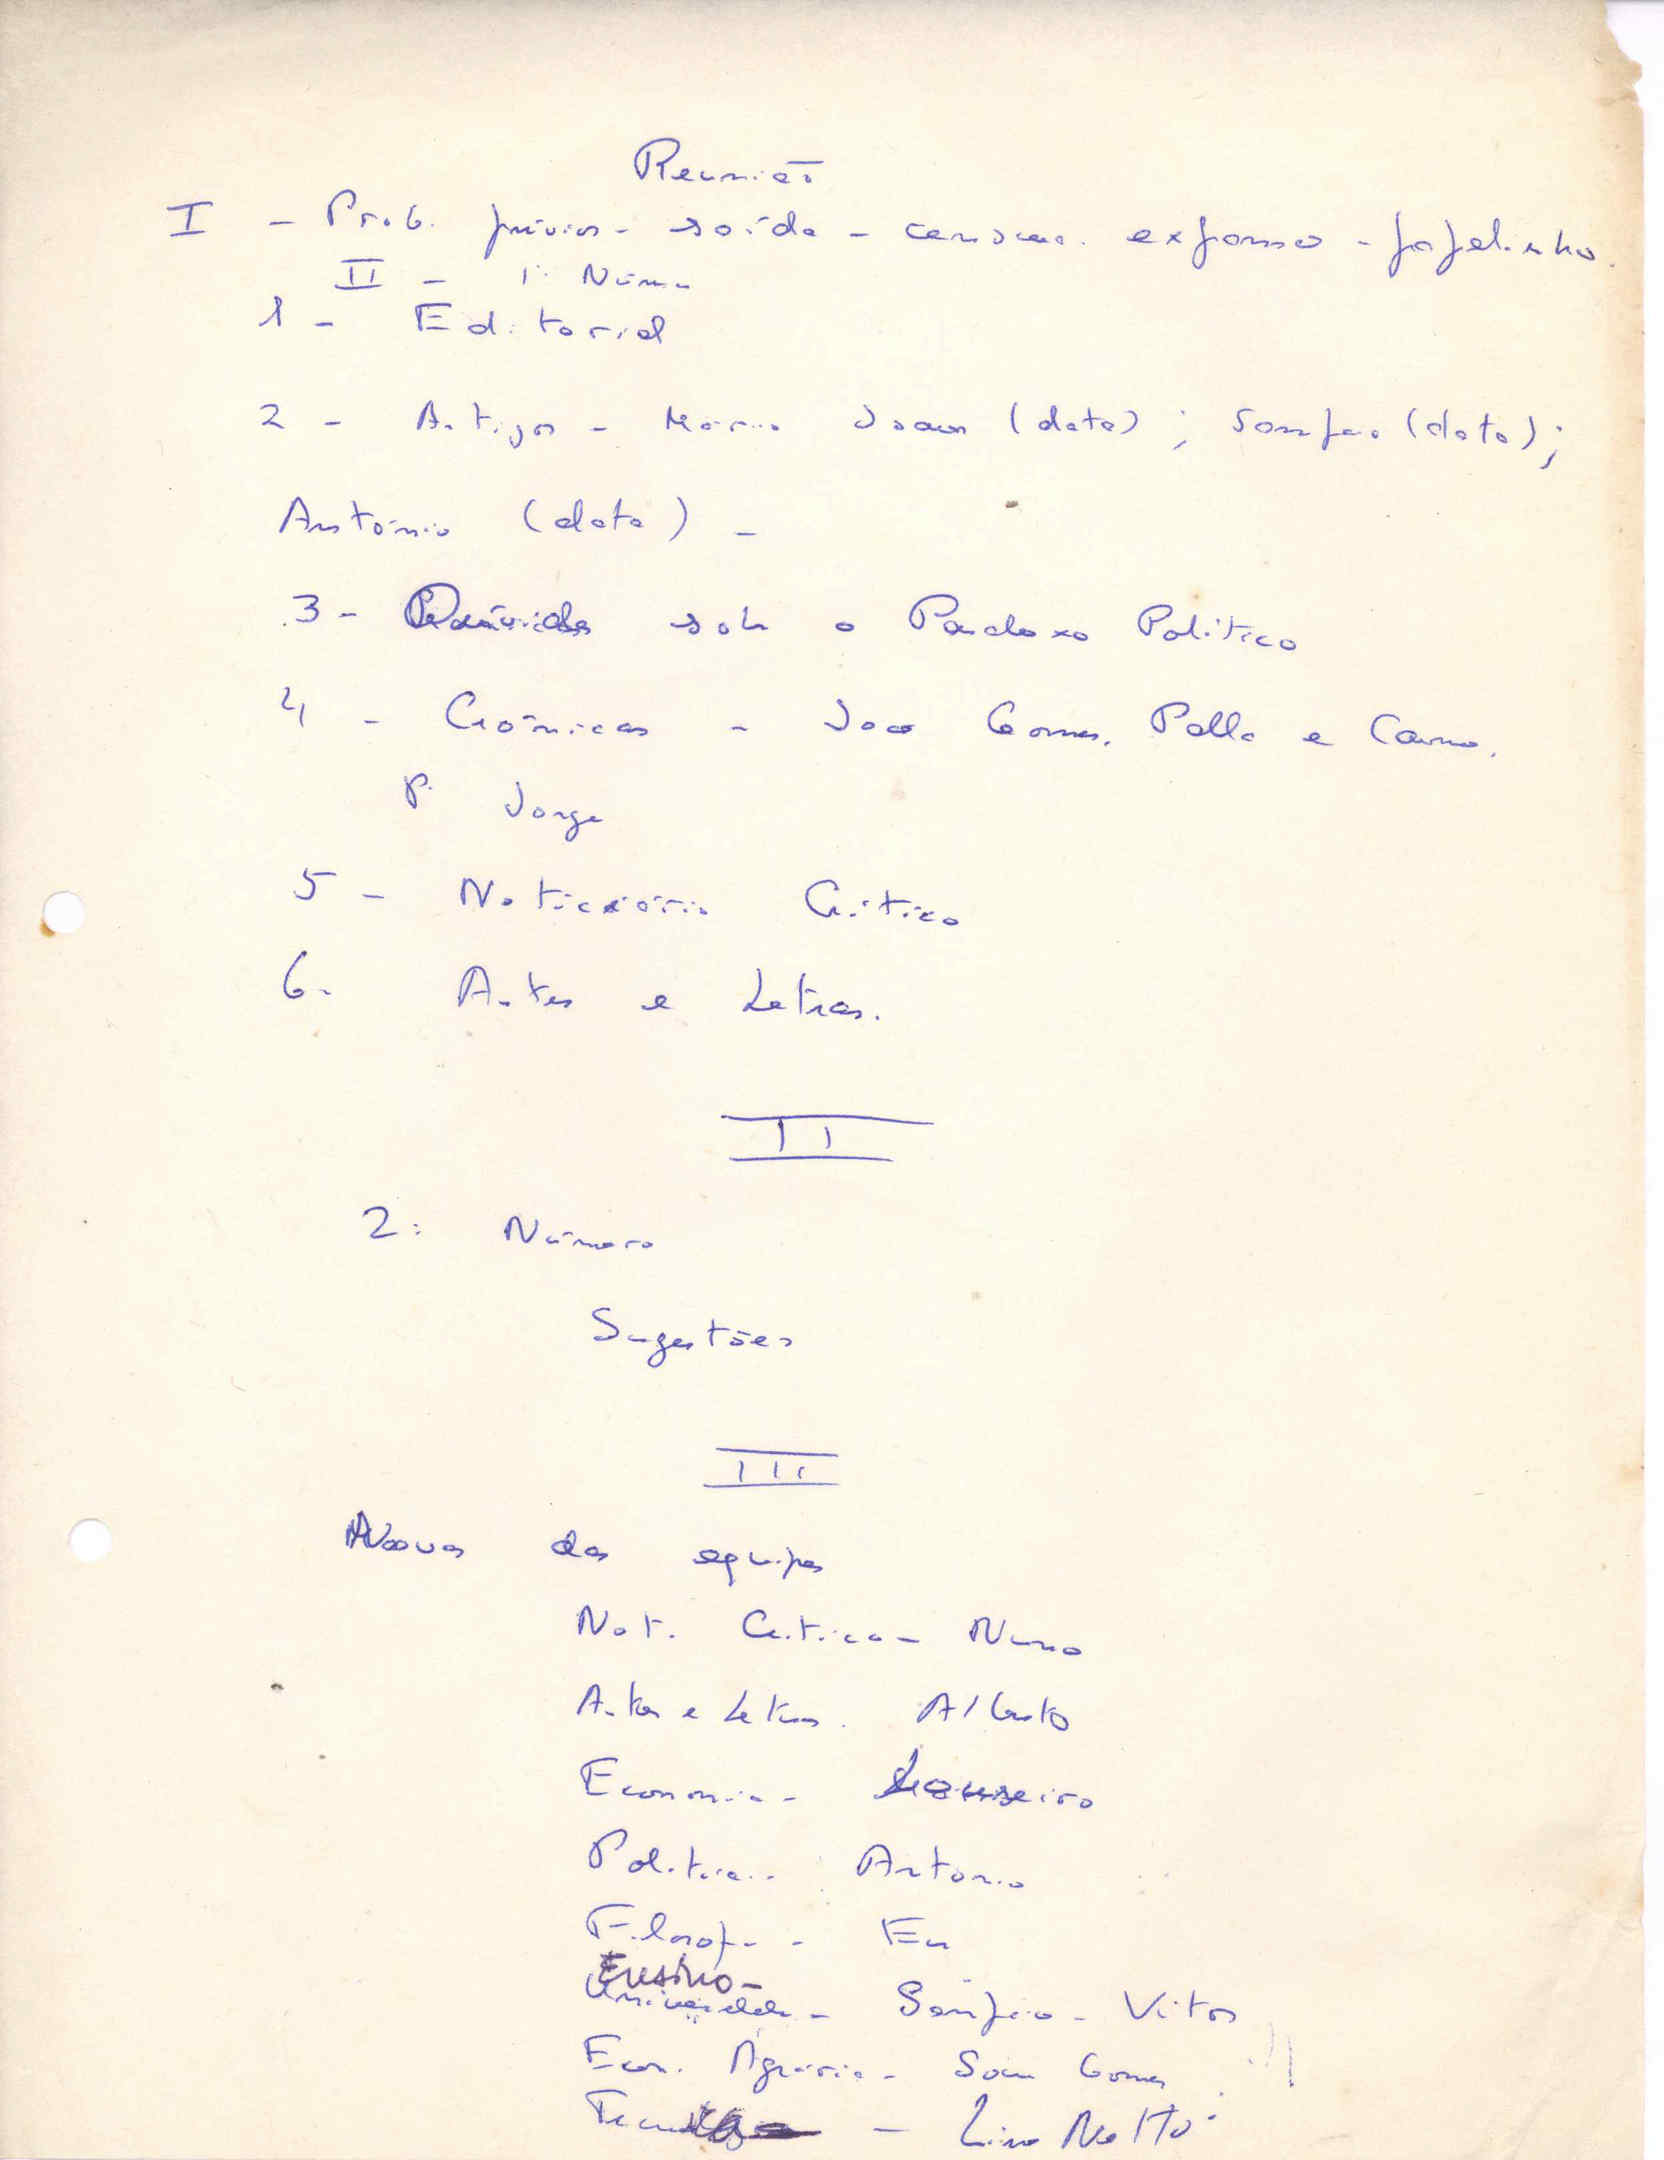 Reunião
I - Prob. prévios - saída - censura. expansão - papelinho.
II - 1º Número
1 - Editorial
2 - Artigos - Mário (data); Sampaio (data);
António (data) -
3 - sobre o Paradoxo Político
4 - Crónicas - João Gomes, Palla e Carmo.
P. Jorge
5 - Noticiário Crítico
6 - Artes e Letras.
II
2º Número
Sugestões
III
Novas das equipas
Not. Crítico - Nuno
Artes e Letras. Alberto
Economia - Loureiro
Política - António
Filosof. - Eu
Ensino -
Universidade - Sampaio - Vitor
Econ. Agrária - Gomes
- Lino Netto